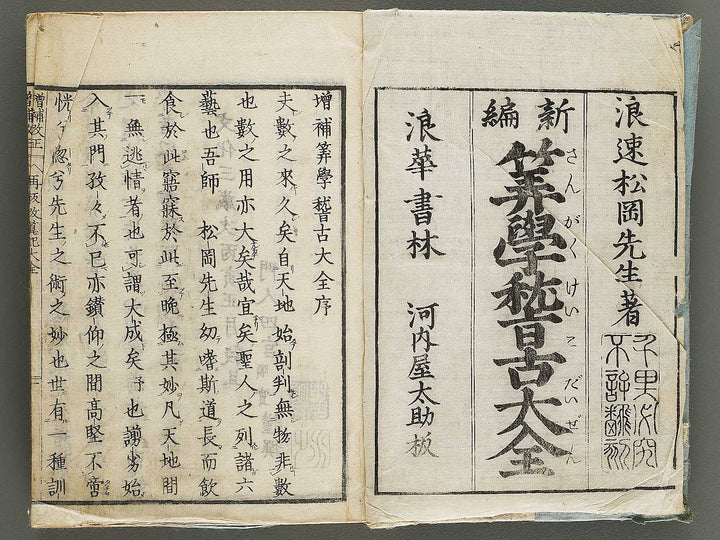 浪速松岡先生著
新編
筭學稽古大全
さんがくけいこだいぜん
浪華書林 河内屋太助板
增補筭學稽古大全序
夫數之來久矣自天地始剖判無物非數
也數之用亦大矣哉宜矣聖人之列諸六
藝也吾師 松岡先生幼嗜斯道長而飲
食於此寤寐於此至晩極其妙凡天地間
一無逃情者也可謂大成矣予也謭劣始
入其門孜々不已亦鑚仰之間高堅不啻
恍兮忽兮先生之術之妙也世有一種訓